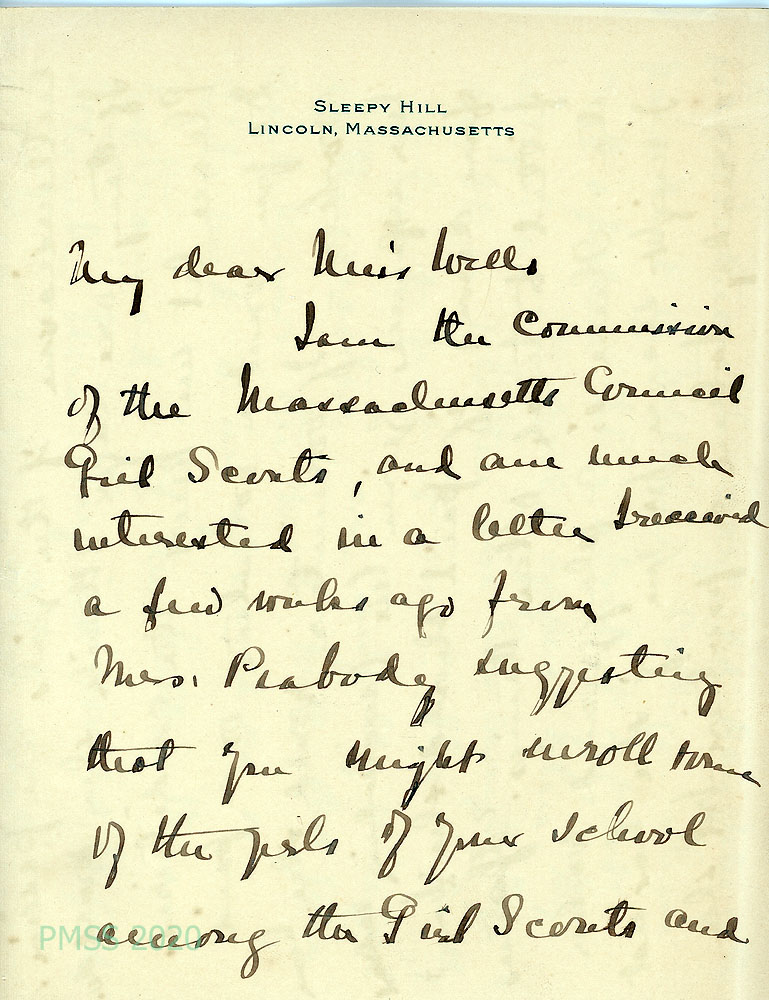 SLEEPY HILL
LINCOLN, MASSACHUSETTS
My dear Miss Wells
I am the Commission
of the Massachusetts Council
Girl Scouts, and am much
interested in a letter I received
a few weeks ago from
Mrs. Peabody suggesting
that you might enroll some
of the girls of your school
among the Girl Scouts and
PMSS 2020